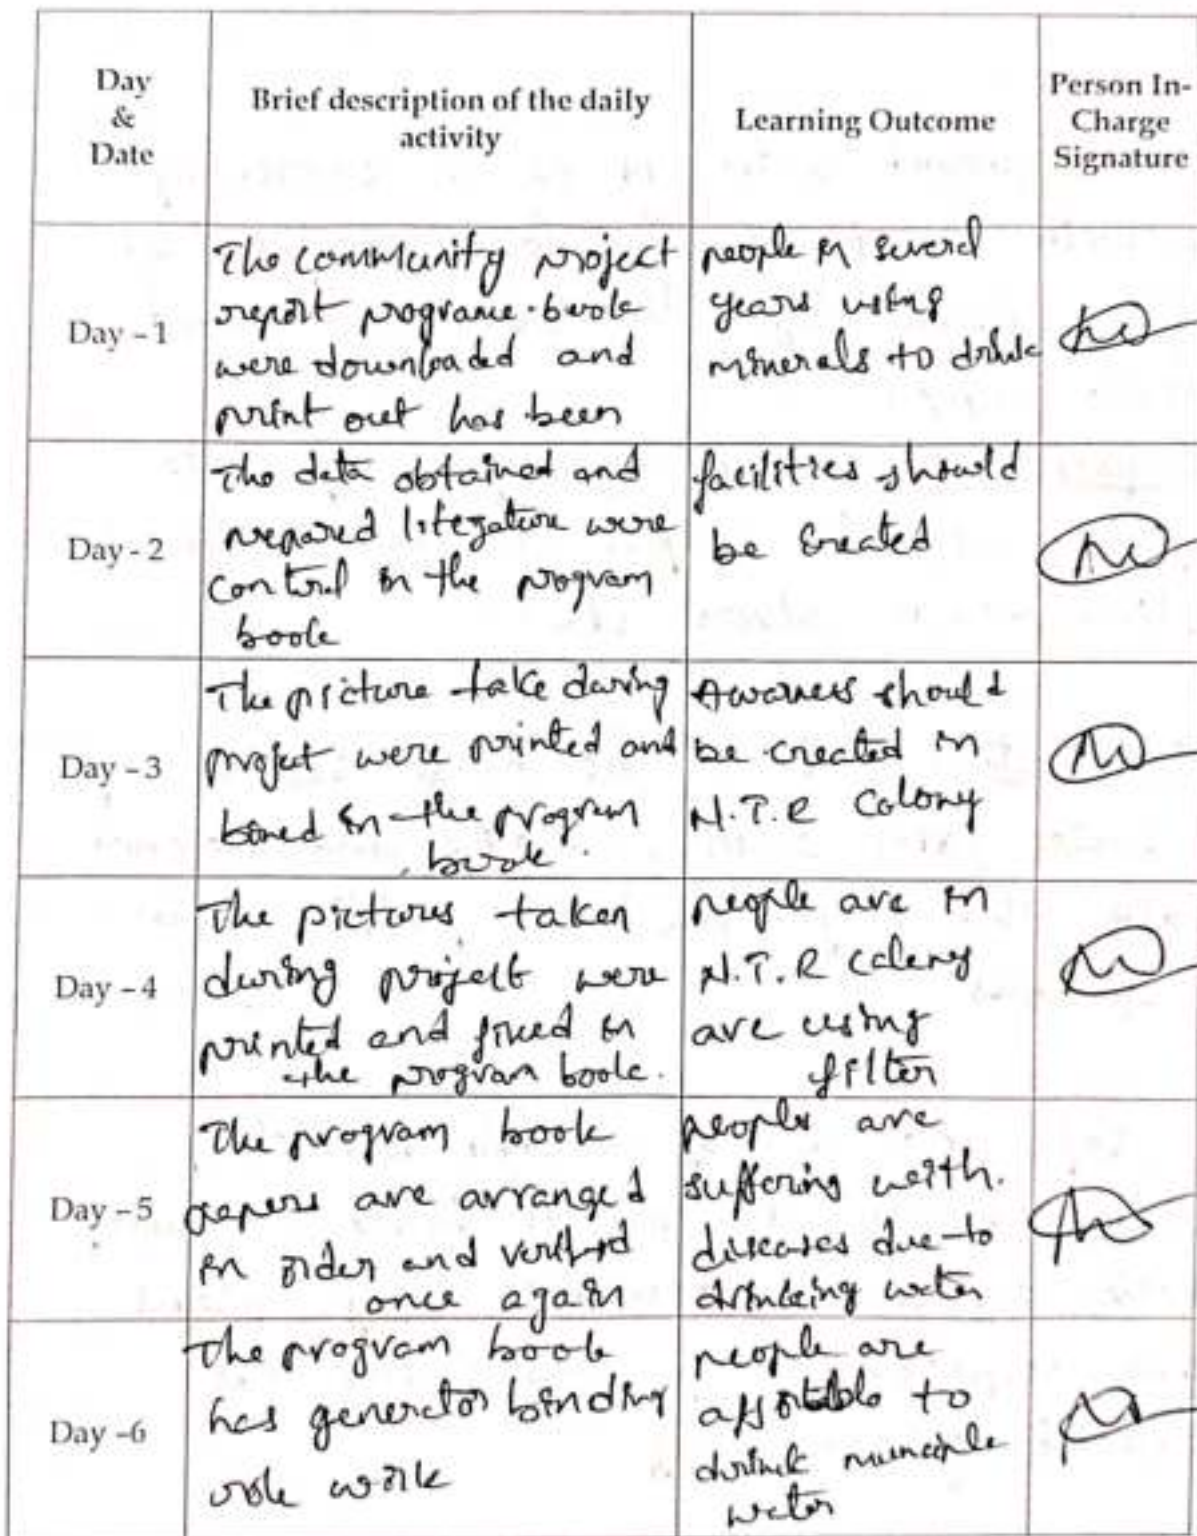 Day
&
Date
Brief description of the daily
activity
Learning Outcome
Person In-
Charge
Signature
Day - 1
The community project
report programe book
were downloaded and
print out has been
people in several
years using
minerals to drink
Day - 2
The data obtained and
prepared literature were
control in the program
book
facilities should
be created
Day - 3
The picture take during
project were printed and
in the program
book.
Awarness should
be created in
N.T.R Colony
Day - 4
The pictures taken
during project were
printed and fixed in
the program book.
people are in
N.T.R Colony
are using
filter
Day - 5
The program book
papers are arranged
in order and verified
once again
people are
suffering with.
diseases due to
drinking water
Day -6
The program book
has generator binding
work
people are
to
drink
water